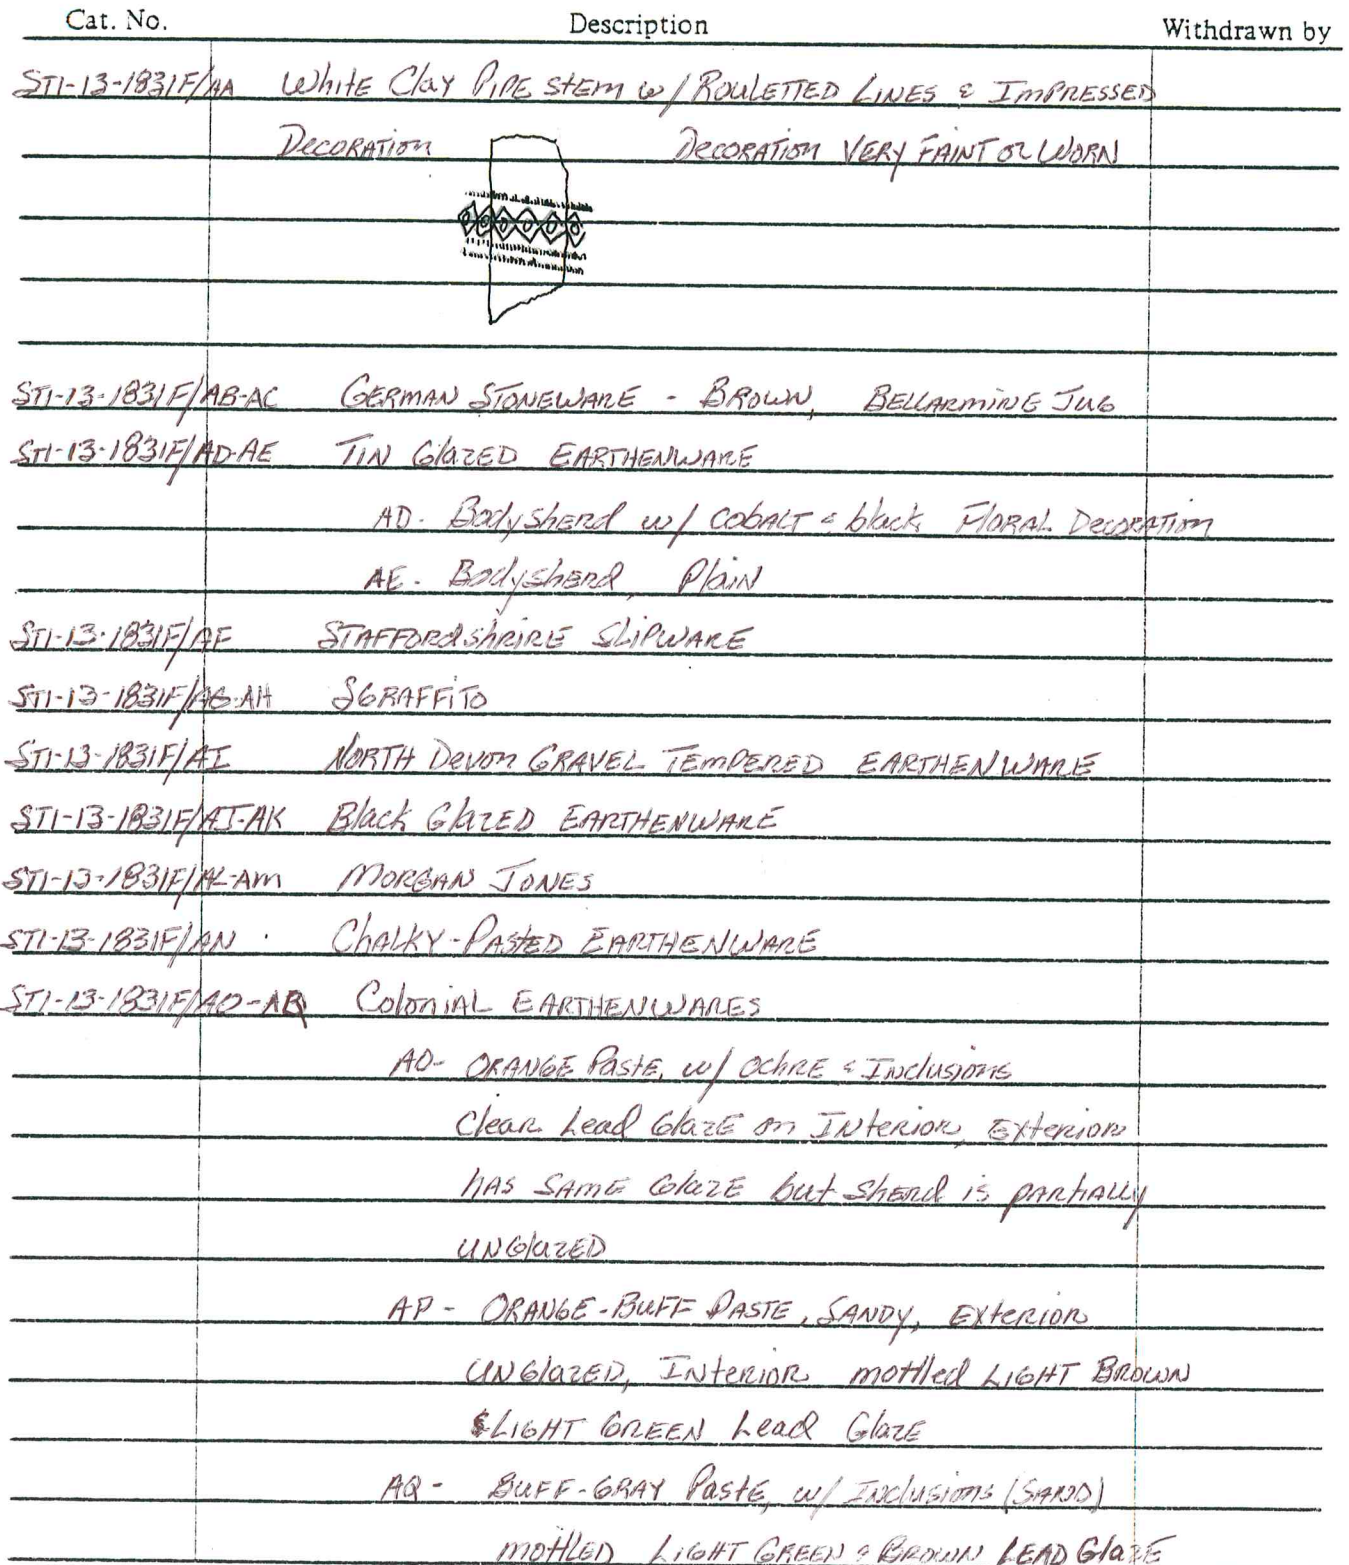 Cat. No. Description Withdrawn by
ST1-13-1831F/AA White Clay Pipe Stem w/ Rouletted Lines & Impressed
Decoration Decoration Very Faint or Worn
ST1-13-1831F/AB-AC German Stoneware - Brown, Bellarmine Jug
ST1-13-1831F/AD-AE Tin Glazed Earthenware
AD- Bodysherd w/ cobalt & black Floral Decoration
AE- Bodysherd, Plain
ST1-13-1831F/AF Staffordshrire Slipware
ST1-13-1831F/AG-AH Sgraffito
ST1-13-1831F/AI North Devon Gravel Tempered Earthenware
ST1-13-1831F/AJ-AK Black Glazed Earthenware
ST1-13-1831F/AL-AM Morgan Jones
ST1-13-1831F/AN Chalky-Pasted Earthenware
ST1-13-1831F/AO-AQ Colonial Earthenwares
AO- Orange Paste, w/ ochre & Inclusions
Clear Lead Glaze on Interior, Exterior
has same Glaze but sherd is partially
unglazed
AP- Orange-Buff Paste, Sandy, Exterior
unglazed, Interior mottled Light Brown
& Light Green Lead Glaze
AQ- Buff-Gray Paste, w/ Inclusions (Sand)
mottled Light Green & Brown Lead Glaze